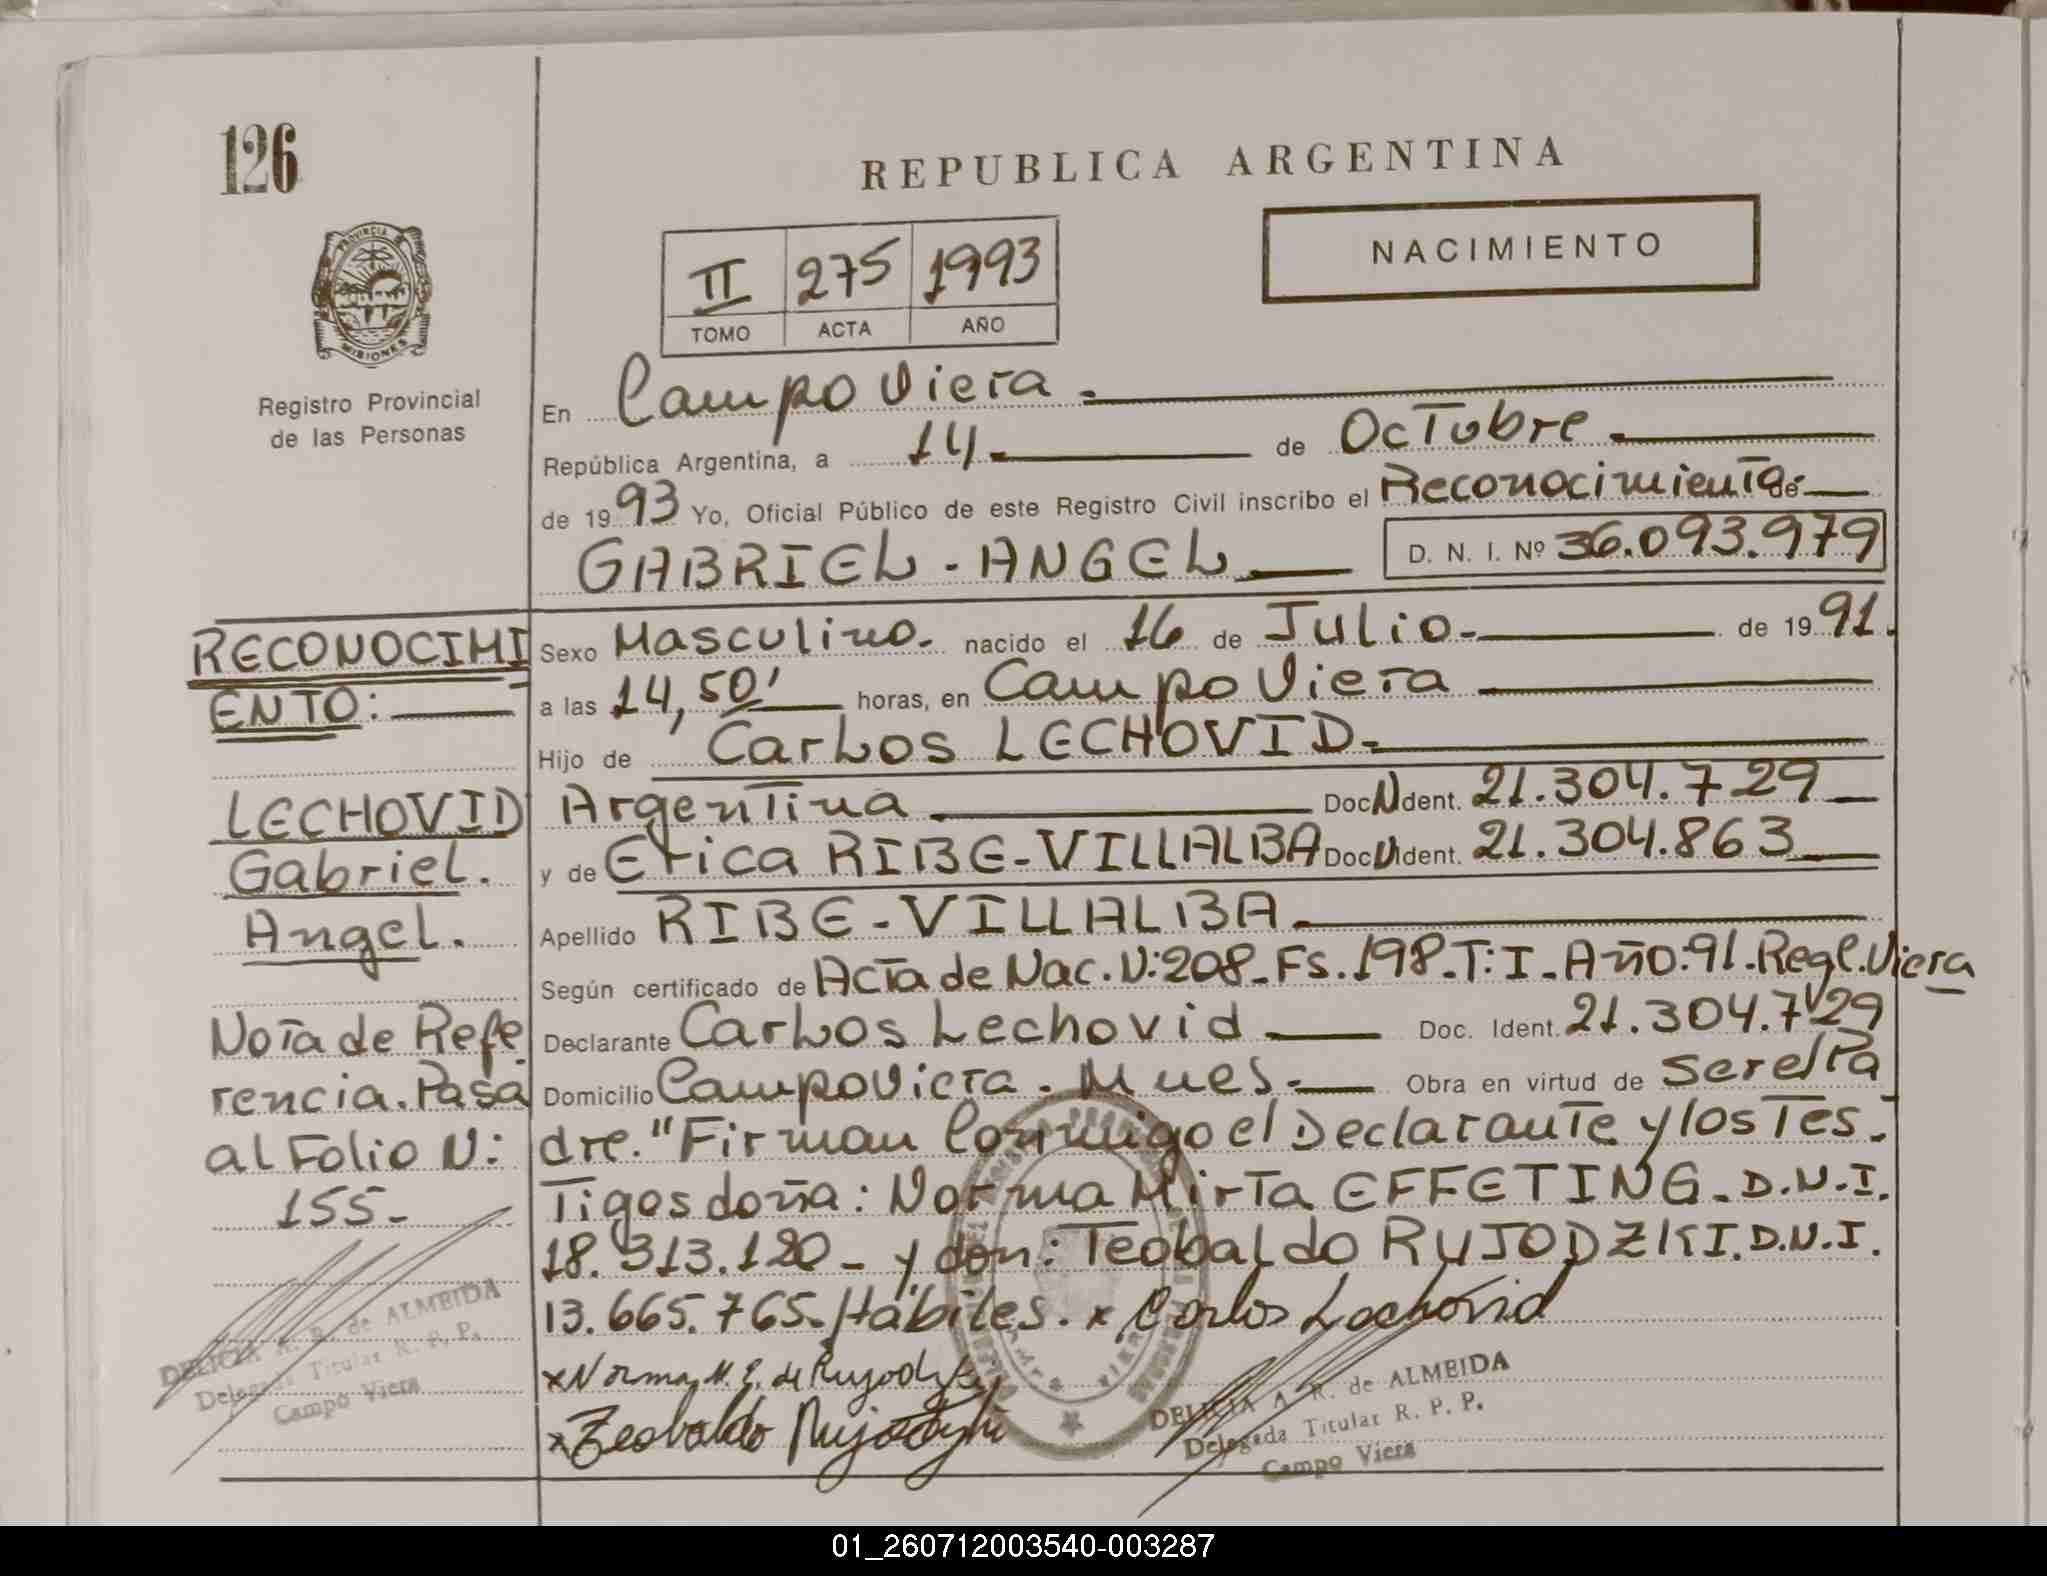 126
REPUBLICA ARGENTINA
NACIMIENTO
II 275 1993
TOMO ACTA AÑO
PROVINCIA DE
MISIONES
Registro Provincial
de las Personas
En Campo Viera.
República Argentina, a 14. de Octubre.
de 1993 Yo, Oficial Público de este Registro Civil inscribo el Reconocimiento de
GABRIEL - ANGEL D. N. I. Nº 36.093.979
Sexo Masculino. nacido el 16 de Julio. de 1991.
a las 14,50' horas, en Campo Viera
Hijo de Carlos LECHOVID.
Argentina Doc N Ident. 21.304.729
y de Erica RIBE-VILLALBA Doc N Ident. 21.304.863
Apellido RIBE-VILLALBA.
Según certificado de Acta de Nac. N:208-Fs.198-T:I-Año:91-Regl.Viera
Declarante Carlos Lechovid Doc. Ident. 21.304.729
Domicilio Campo Viera. Mnes. Obra en virtud de ser el Pa
dre." Firman Conmigo el Declarante y los Tes-
Tigos doña: Norma Mirta EFFETING. D.N.I.
18.313.120 - y don: Teobaldo RUJODZKI. D.N.I.
13.665.765. Hábiles. x Carlos Lechovid
x Norma M. E. de Rujodzki
x Teobaldo Rujodzki
DELICIA A. R. de ALMEIDA
Delegada Titular R. P. P.
Campo Viera
RECONOCIMI
ENTO:
LECHOVID
Gabriel.
Angel.
Nota de Refe
rencia. Pasa
al Folio N:
155-
DELICIA A. R. de ALMEIDA
Delegada Titular R. P. P.
Campo Viera
01_260712003540-003287